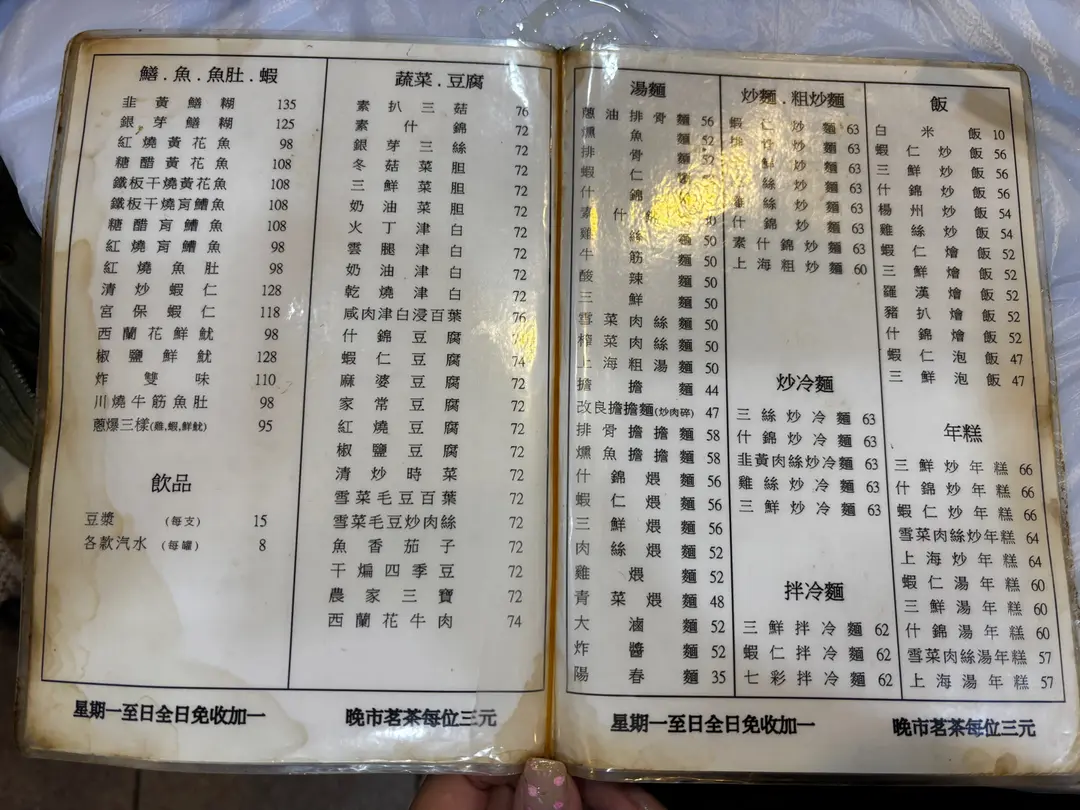 鱔.魚.魚肚.蝦
韭黃鱔糊 135
銀芽鱔糊 125
紅燒黃花魚 98
糖醋黃花魚 108
鐵板干燒黃花魚 108
鐵板干燒肓鰽魚 108
糖醋肓鰽魚 108
紅燒肓鰽魚 98
紅燒魚肚 98
清炒蝦仁 128
宮保蝦仁 118
西蘭花鮮魷 98
椒鹽鮮魷 128
炸雙味 110
川燒牛筋魚肚 98
蔥爆三樣(雞,蝦,鮮魷) 95
飲品
豆漿 (每支) 15
各款汽水 (每罐) 8
蔬菜.豆腐
素扒三菇 76
素什錦 72
銀芽三絲 72
冬菇菜胆 72
三鮮菜胆 72
奶油菜胆 72
火丁津白 72
雲腿津白 72
奶油津白 72
乾燒津白 72
咸肉津白浸百葉 76
什錦豆腐
蝦仁豆腐 74
麻婆豆腐 72
家常豆腐 72
紅燒豆腐 72
椒鹽豆腐 72
清炒時菜 72
雪菜毛豆百葉 72
雪菜毛豆炒肉絲 72
魚香茄子 72
干煸四季豆 72
農家三寶 72
西蘭花牛肉 74
星期一至日全日免收加一
晚市茗茶每位三元
湯麵
蔥油排骨麵 56
燻魚麵 52
排骨麵 52
蝦仁麵
什錦麵
素什
雞絲麵 50
牛筋麵 50
酸辣麵 50
三鮮麵 50
雪菜肉絲麵 50
榨菜肉絲麵 50
上海粗湯麵 50
擔擔麵 44
改良擔擔麵(炒肉碎) 47
排骨擔擔麵 58
燻魚擔擔麵 58
什錦煨麵 56
蝦仁煨麵 56
三鮮煨麵 56
肉絲煨麵 52
雞煨麵 52
青菜煨麵 48
大滷麵 52
炸醬麵 52
陽春麵 35
炒麵.粗炒麵
蝦仁炒麵 63
炒麵 63
鮮炒麵 63
絲炒麵 63
絲炒麵 63
什錦炒麵 63
素什錦炒麵 63
上海粗炒麵 60
炒冷麵
三絲炒冷麵 63
什錦炒冷麵 63
韭黃肉絲炒冷麵 63
雞絲炒冷麵 63
三鮮炒冷麵 63
拌冷麵
三鮮拌冷麵 62
蝦仁拌冷麵 62
七彩拌冷麵 62
飯
白米飯 10
蝦仁炒飯 56
三鮮炒飯 56
什錦炒飯 56
楊州炒飯 54
雞絲炒飯 54
蝦仁燴飯 52
三鮮燴飯 52
羅漢燴飯 52
豬扒燴飯 52
什錦燴飯 52
蝦仁泡飯 47
三鮮泡飯 47
年糕
三鮮炒年糕 66
什錦炒年糕 66
蝦仁炒年糕 66
雪菜肉絲炒年糕 64
上海炒年糕 64
蝦仁湯年糕 60
三鮮湯年糕 60
什錦湯年糕 60
雪菜肉絲湯年糕 57
上海湯年糕 57
星期一至日全日免收加一
晚市茗茶每位三元